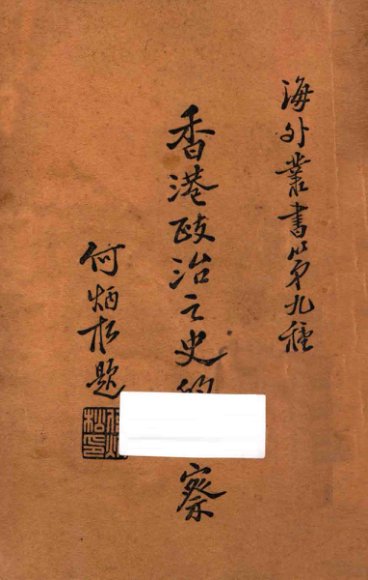 海外叢書第九種
香港政治之史的
察
何炳松題
何炳松印